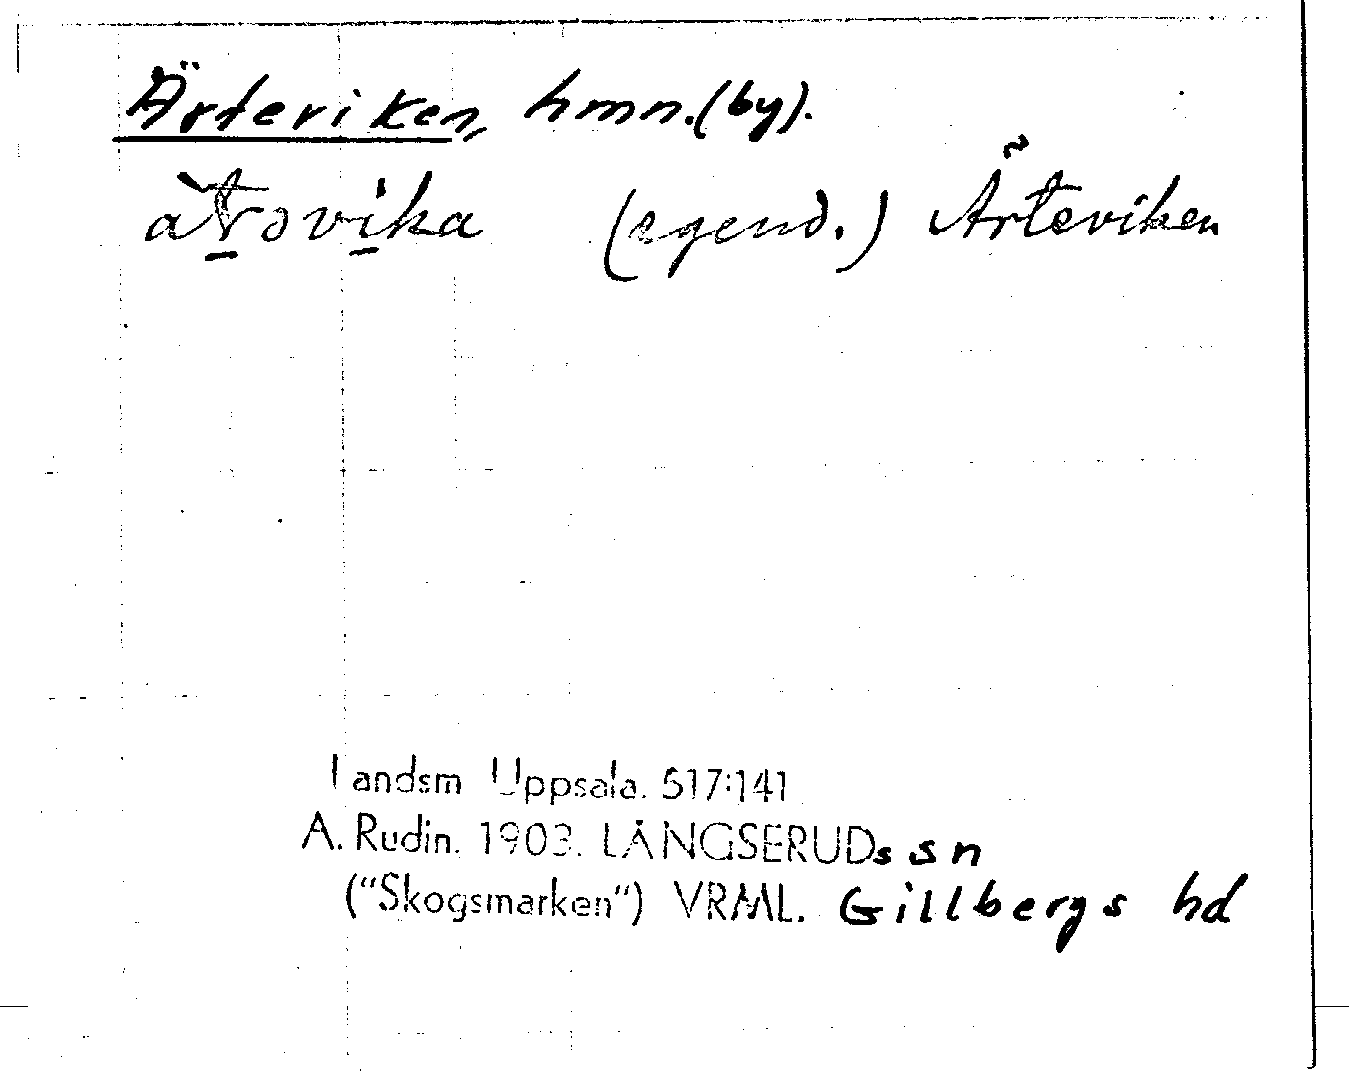 Ärteviken, hmn. (by).
(egend.) Ärteviken
Landsm Uppsala. 517:141
A. Rudin. 1903. LÅNGSERUDs sn
("Skogsmarken") VRML. Gillbergs hd